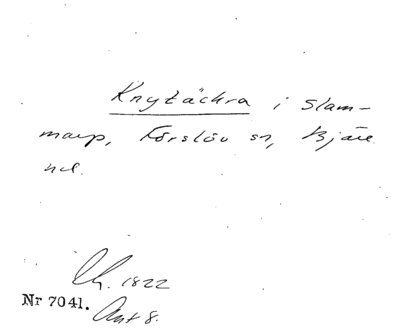 Knytäckra i Slam-
marp, Förslöv sn, Bjäre
hd.
1822
Nr 7041. Akt 8.